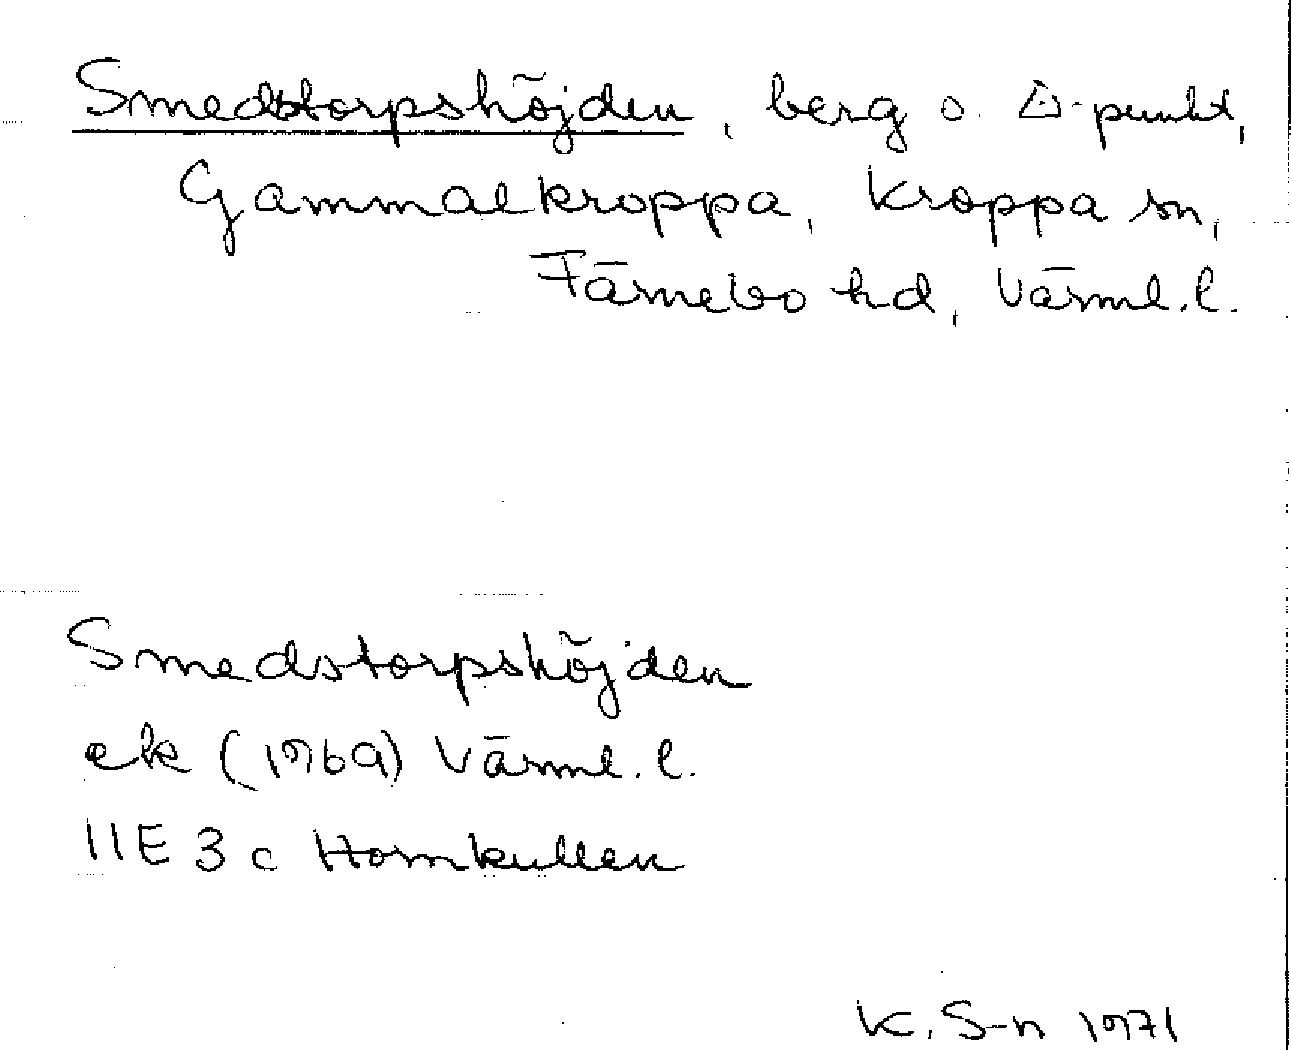 Smedstorpshöjden, berg o. △-punkt,
Gammalkroppa, Kroppa sn,
Färnebo hd, Värml. l.
Smedstorpshöjden
ek (1969) Värml. l.
11E 3 c Hornkullen
K. S-n 1971